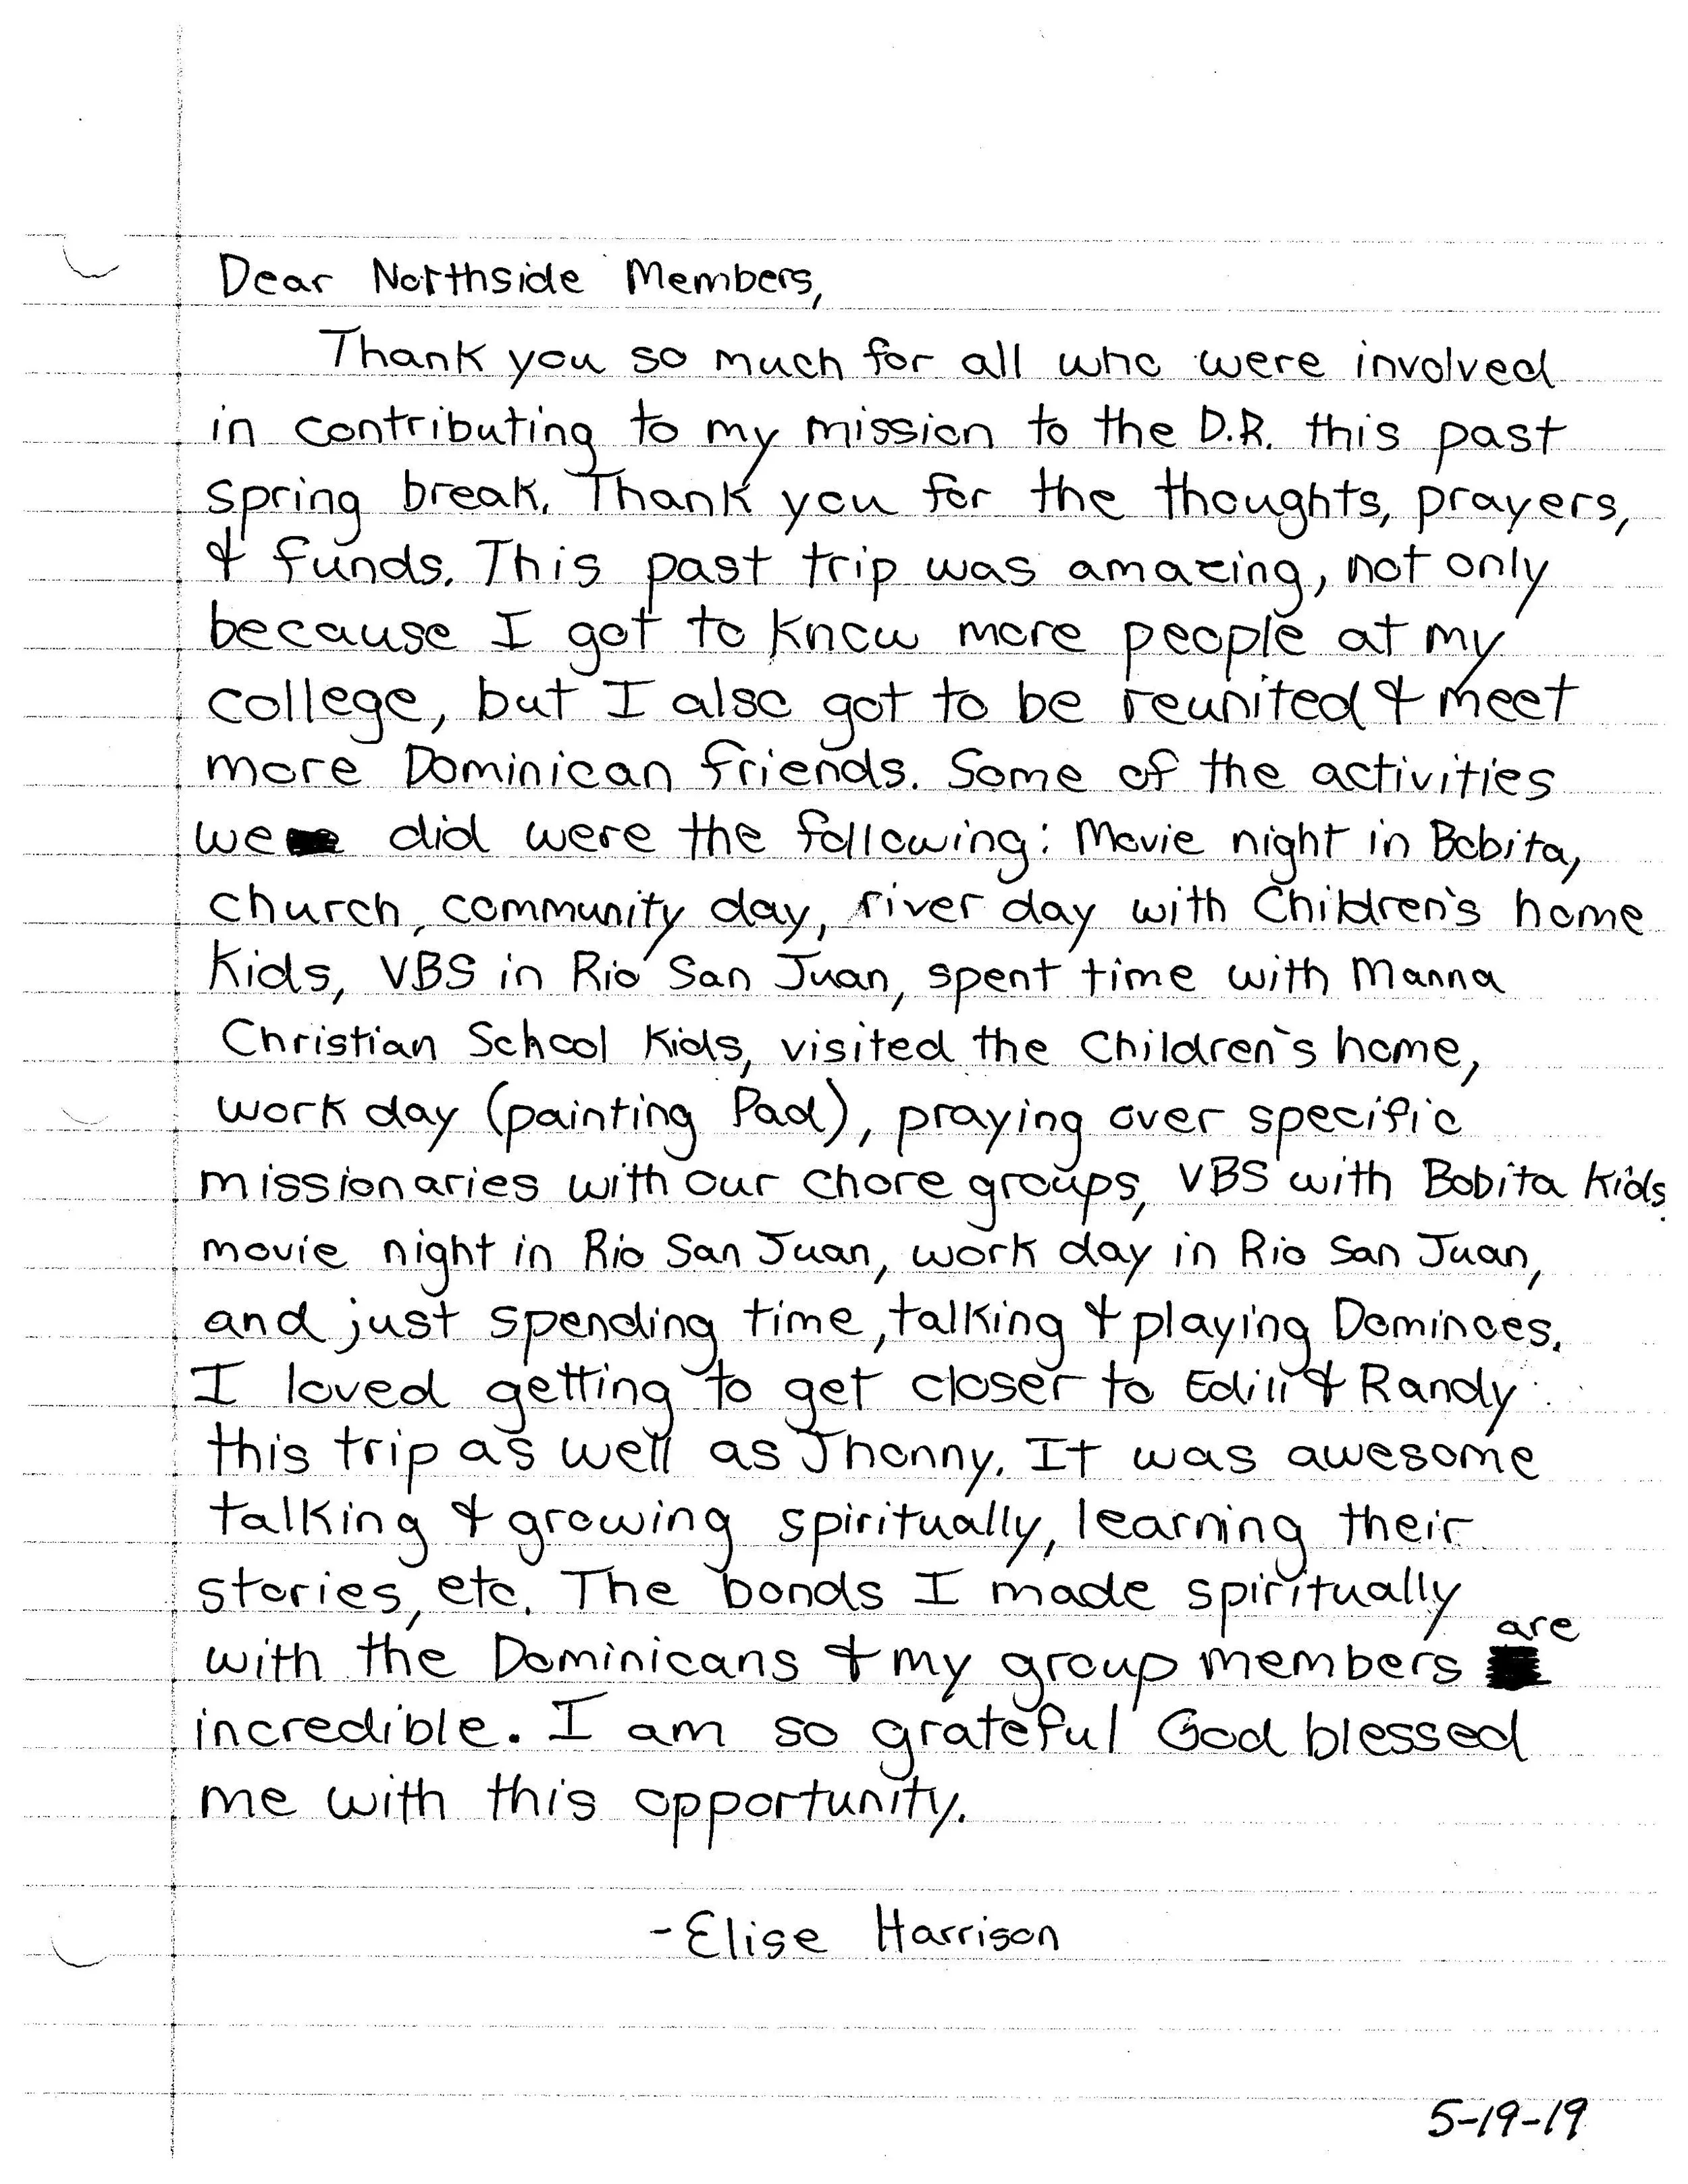 Dear Northside Members,
Thank you so much for all who were involved
in contributing to my mission to the D.R. this past
spring break. Thank you for the thoughts, prayers,
& funds. This past trip was amazing, not only
because I got to know more people at my
college, but I also got to be reunited & meet
more Dominican friends. Some of the activities
we did were the following: Movie night in Bobita,
church, community day, river day with Children's home
kids, VBS in Rio San Juan, spent time with Manna
Christian School kids, visited the Children's home,
work day (painting Pad), praying over specific
missionaries with our chore groups, VBS with Bobita kids,
movie night in Rio San Juan, work day in Rio San Juan,
and just spending time, talking & playing Dominoes.
I loved getting to get closer to Edili & Randy
this trip as well as Jhonny. It was awesome
talking & growing spiritually, learning their
stories, etc. The bonds I made spiritually
with the Dominicans & my group members are
incredible. I am so grateful God blessed
me with this opportunity.
-Elise Harrison
5-19-19